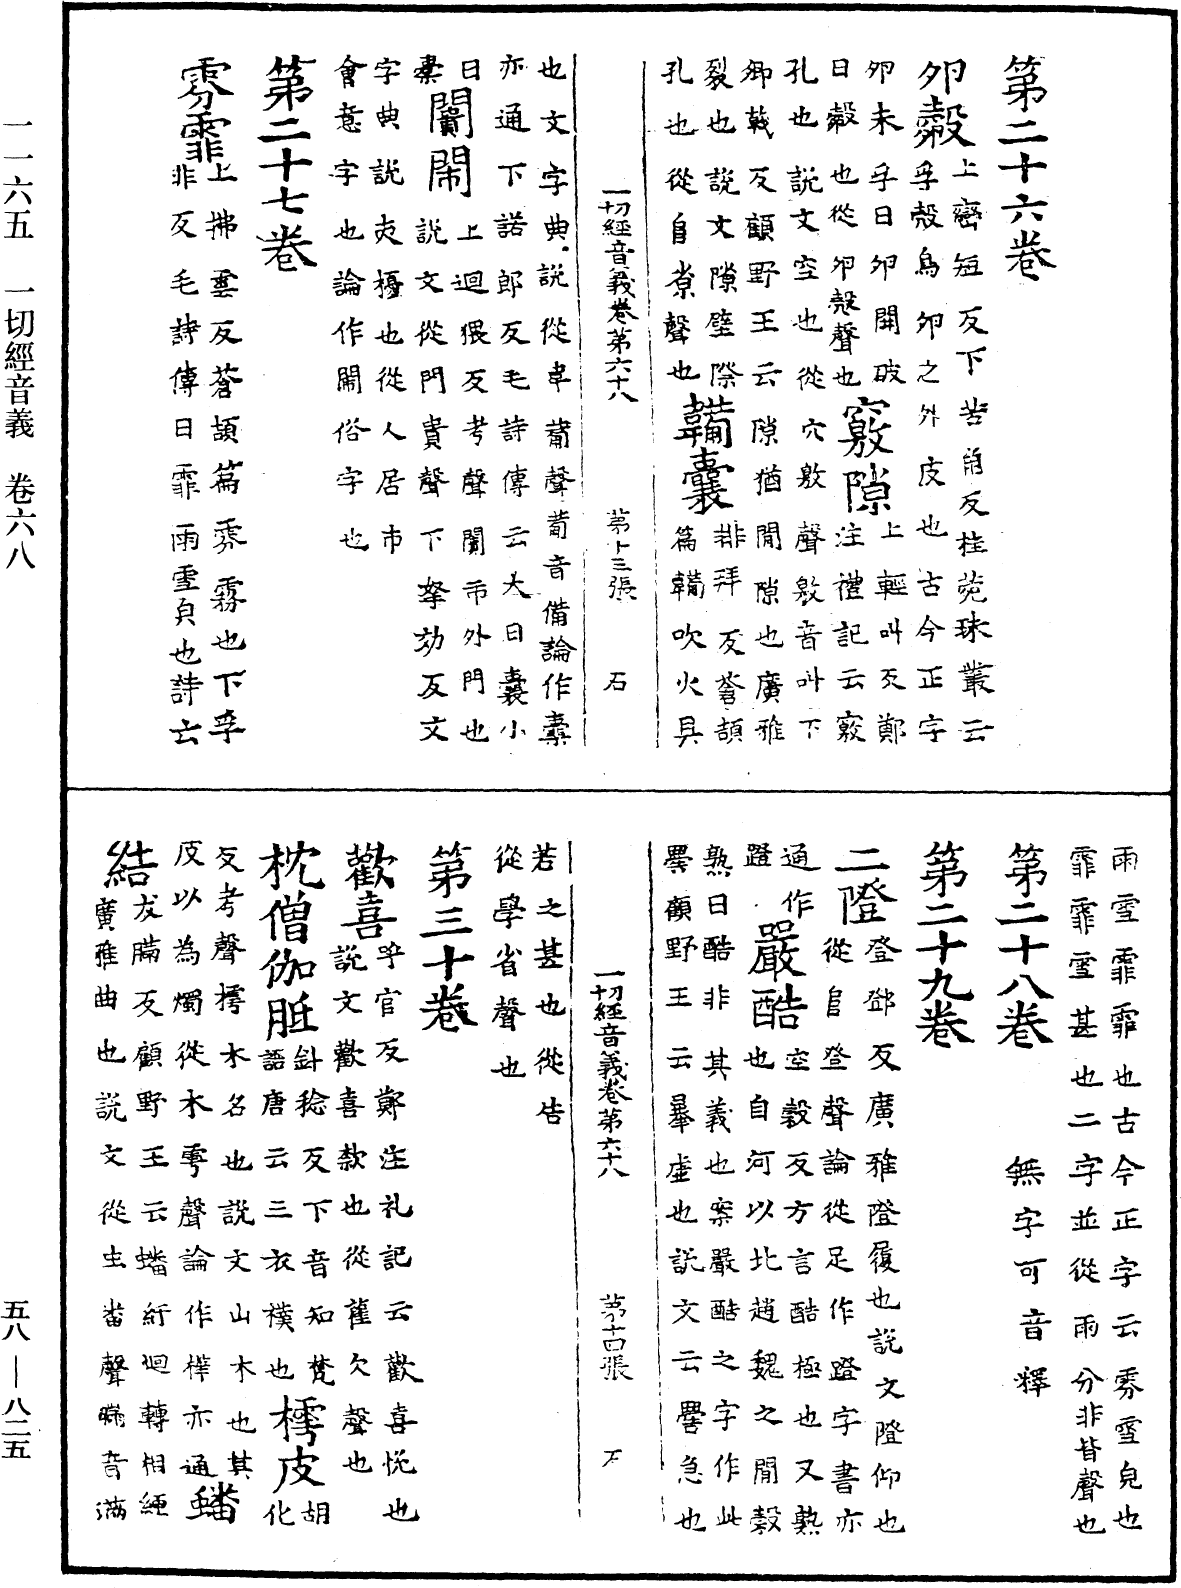 第二十六卷
卵㲉上鸞短反下苦角反桂苑珠叢云
孚殼鳥卵之外皮也古今正字
卵未孚日卵開破
日㲉也從卵殼聲也竅隙上輕叫反鄭
注禮記云竅
孔也說文空也從穴敫聲敫音叫下
卿戟反顧野王云隙猶閒隙也廣雅
裂也說文隙壁際
孔也從𨸏𡭴聲也鞴囊排拜反蒼頡
篇鞴吹火具
一切經音義卷第六十八　第十三張　石
也文字典說從韋𤰇聲𤰇音備論作橐
亦通下諾郎反毛詩傳云大曰囊小
曰
橐闠閙上迴猥反考聲闠市外門也
說文從門貴聲下拏効反文
字典說閙擾也從人居市
會意字也論作閙俗字也
第二十七卷
雰霏上拂雲反蒼頡篇雰霧也下孚
非反毛詩傳曰霏雨雪皃也詩云
雨雪霏霏也古今正字云雰雪皃也
霏霏雪甚也二字並從雨分非皆聲也
第二十八卷　無字可音釋
第二十九卷
二隥登鄧反廣雅隥履也說文隥仰也
從𨸏登聲論從足作蹬字書亦
通作
蹬嚴酷空穀反方言酷極也又熟
也自河以北趙魏之閒穀
熟曰酷非其義也案嚴酷之字作此
嚳顧野王云暴虐也說文云嚳急也
一切經音義卷第六十八　第十四張　石
若之甚也從告
從學省聲也
第三十卷
歡喜呼官反鄭注礼記云歡喜悅也
說文歡喜款也從雚欠聲也
枕僧伽胝針稔反下音知梵
語唐云三衣襆也樗皮胡
化
反考聲樗木名也說文山木也其
皮以為燭從木雩聲論作樺亦通蟠
結友瞞反顧野王云蟠紆迴轉相纏
廣雅曲也說文從虫番聲瞞音滿
一一六五　一切經音義　卷六八
五八—八二五